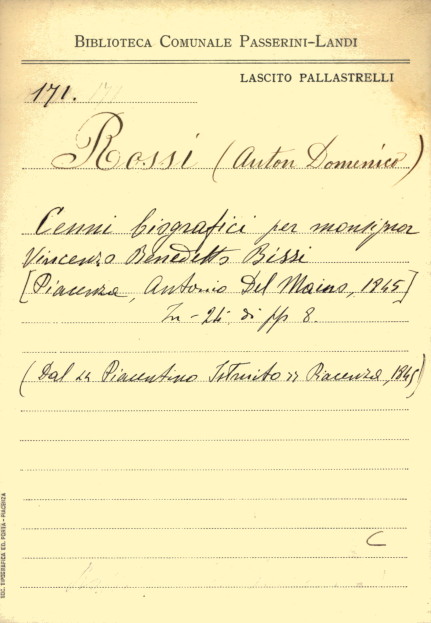 BIBLIOTECA COMUNALE PASSERINI-LANDI
LASCITO PALLASTRELLI
171.
Rossi (Anton Domenico)
Cenni biografici per monsignor
Vincenzo Benedetto Bissi
[Piacenza, Antonio Del Maino, 1845]
In-24. di pp 8.
(Dal "Piacentino Istruito" Piacenza, 1845)
C
SOC. TIPOGRAFICA ED. PONTA - PIACENZA